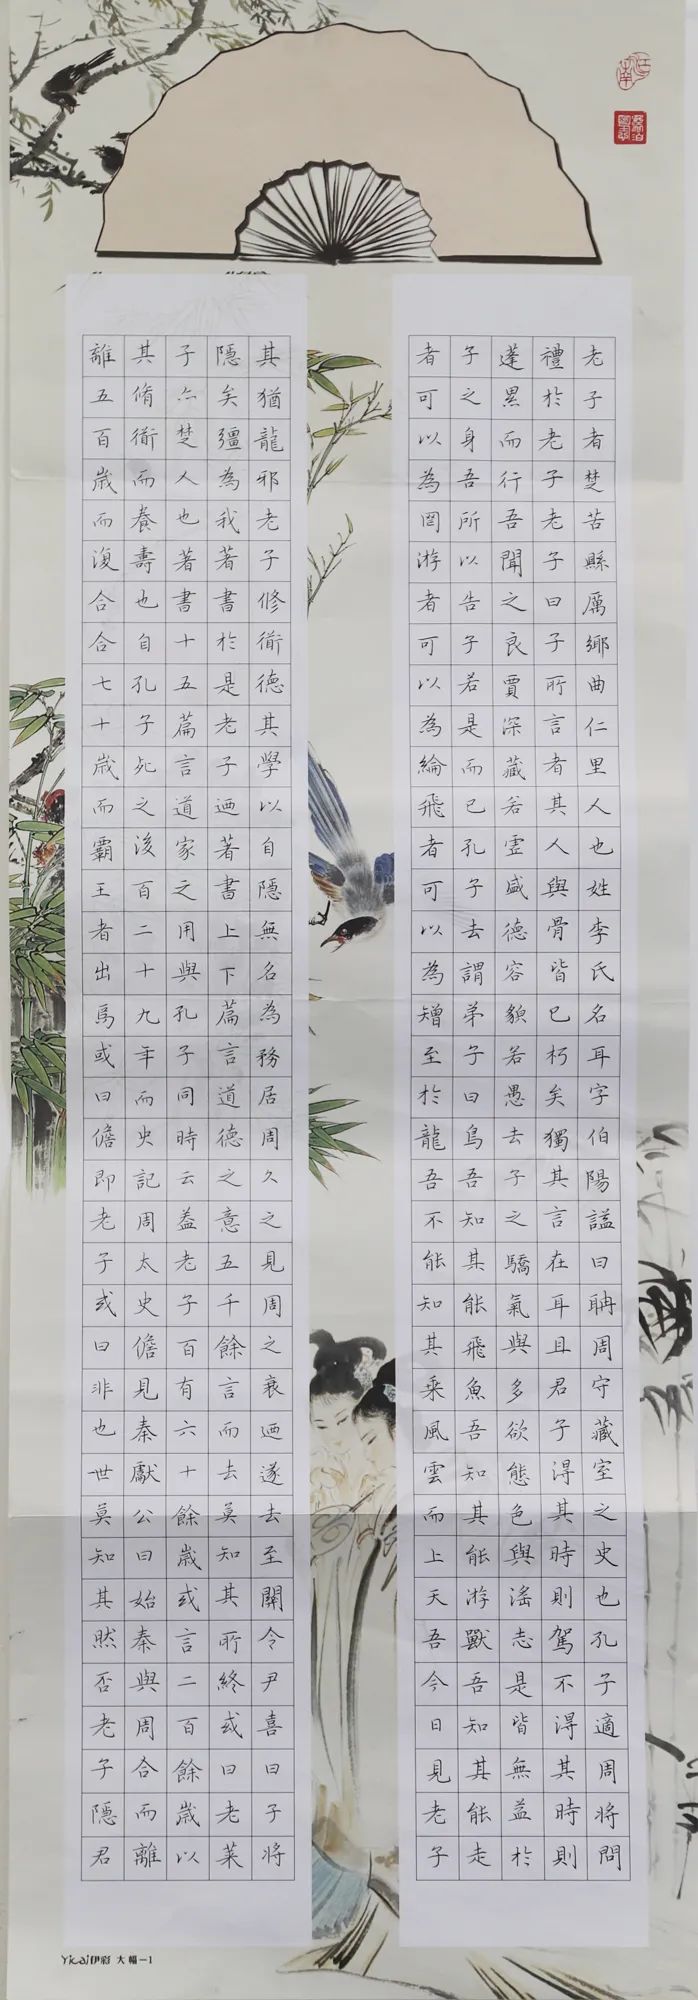 老子者楚苦縣厲鄉曲仁里人也姓李氏名耳字伯陽謚曰聃周守藏室之史也孔子適周將問
禮於老子老子曰子所言者其人與骨皆已朽矣獨其言在耳且君子得其時則駕不得其時則
蓬累而行吾聞之良賈深藏若虛盛德容貌若愚去子之驕氣與多欲態色與淫志是皆無益於
子之身吾所以告子若是而已孔子去謂弟子曰鳥吾知其能飛魚吾知其能游獸吾知其能走
者可以為罔游者可以為綸飛者可以為矰至於龍吾不能知其乘風雲而上天吾今日見老子
其猶龍邪老子修衜德其學以自隱無名為務居周久之見周之衰迺遂去至關令尹喜曰子將
隱矣彊為我著書於是老子迺著書上下篇言道德之意五千餘言而去莫知其所終或曰老萊
子亦楚人也著書十五篇言道家之用與孔子同時云蓋老子百有六十餘歲或言二百餘歲以
其脩衜而養壽也自孔子死之後百二十九年而史記周太史儋見秦獻公曰始秦與周合而離
離五百歲而復合合七十歲而霸王者出焉或曰儋即老子或曰非也世莫知其然否老子隱君
Yicai伊彩 大幅-1